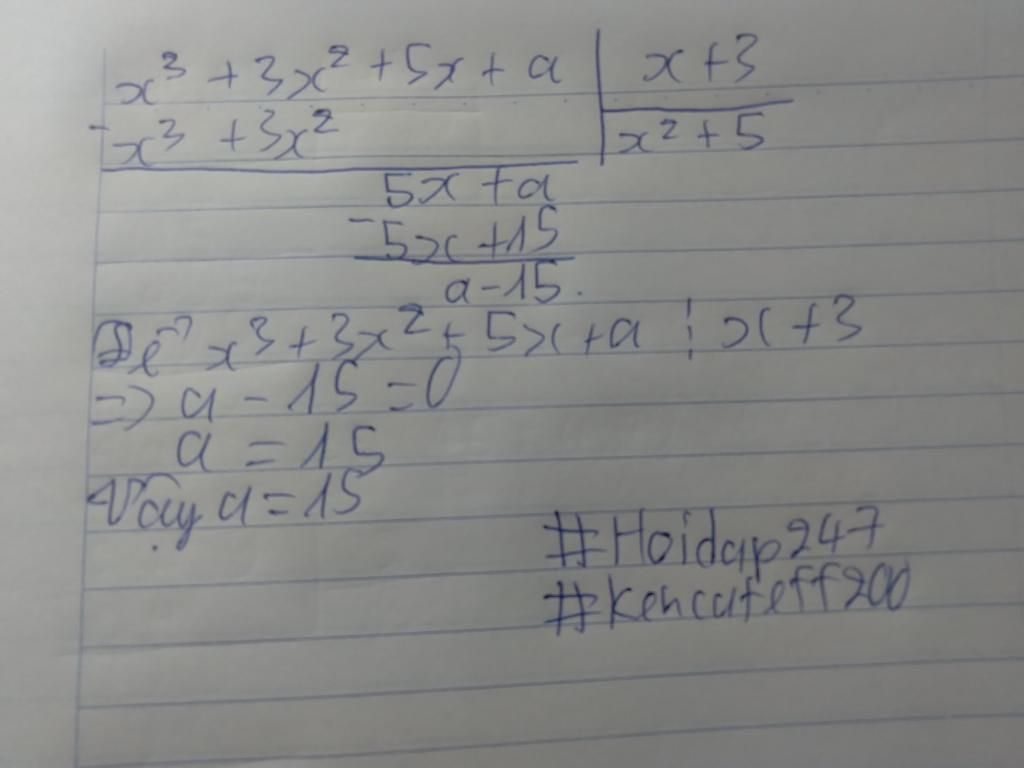 x³ + 3x² + 5x + a | x + 3
- x³ + 3x² | x² + 5
5x + a
- 5x + 15
a - 15.
Để x³ + 3x² + 5x + a ⋮ x + 3
=> a - 15 = 0
a = 15
Vậy a = 15
#Hoidap247
#Kencateff200